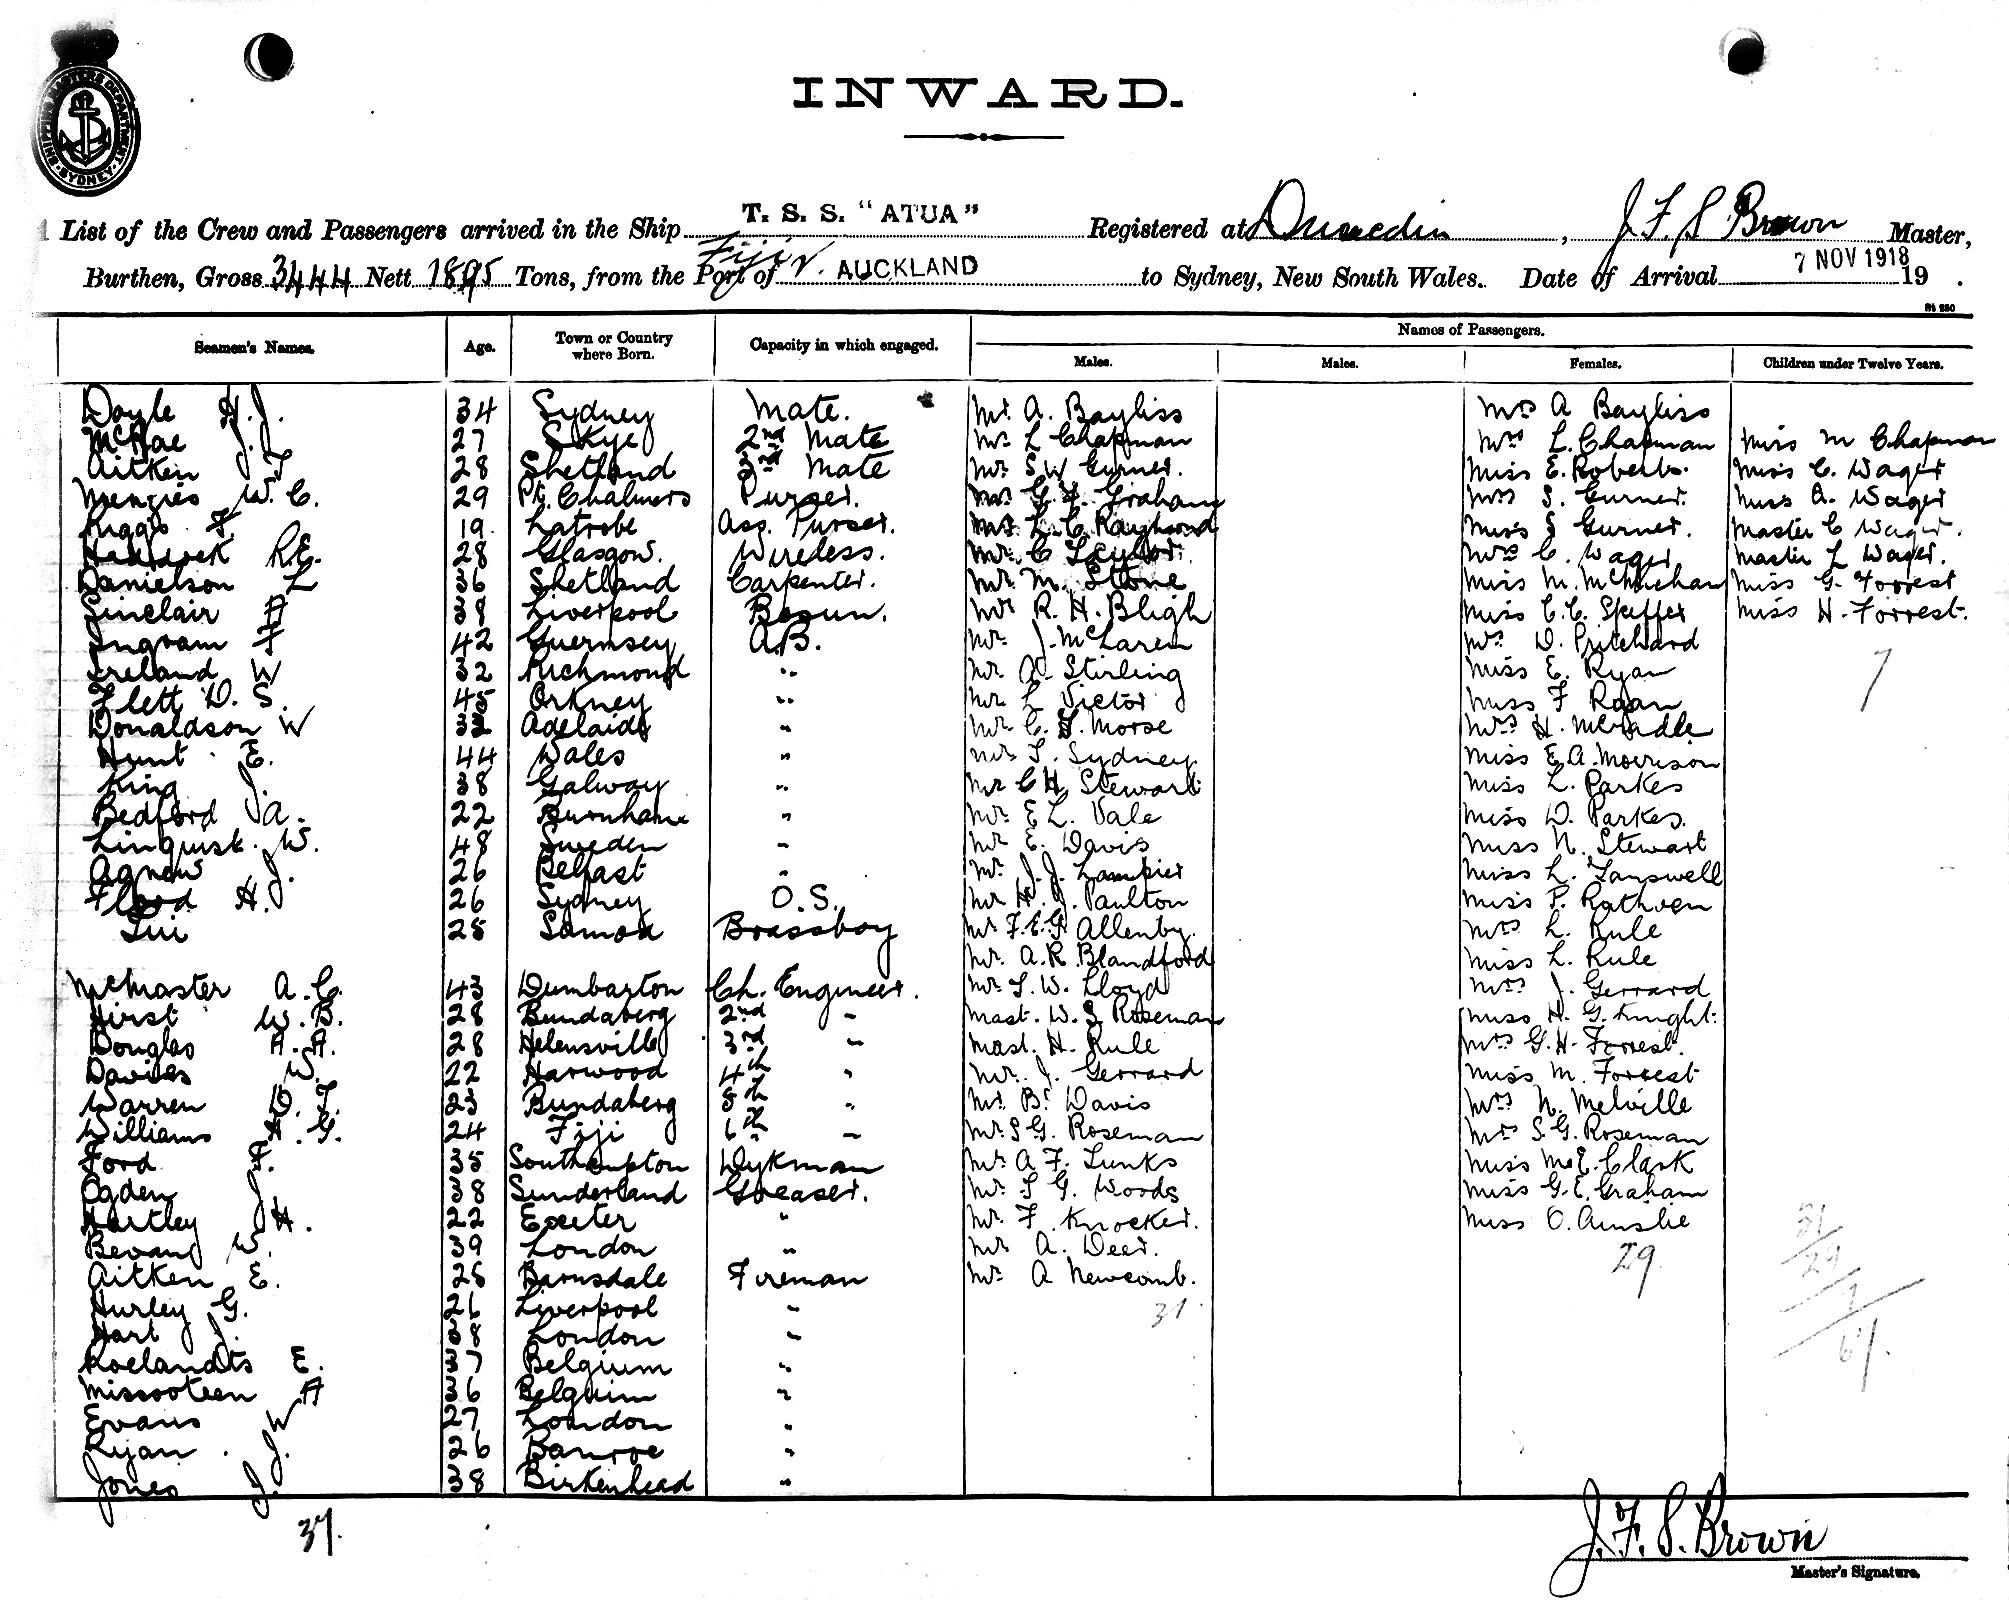 SHIPPING MASTERS DEPARTMENT SYDNEY
INWARD.
List of the Crew and Passengers arrived in the Ship T. S. S. "ATUA" Registered at Dunedin, J. F. S Brown Master,
Burthen, Gross 3444 Nett 1895 Tons, from the Port of Fiji v. AUCKLAND to Sydney, New South Wales. Date of Arrival 7 NOV 1918 19 .
St 250
Seamen's Names. Age. Town or Country where Born. Capacity in which engaged. Names of Passengers.
Males. Males. Females. Children under Twelve Years.
Doyle H.J. 34 Sydney Mate. Mr. A. Bayliss Mrs A Bayliss
McRae J. 27 Skye 2nd Mate Mr. L Chapman Mrs L. Chapman Miss M Chapman
Aitken J. 28 Shetland 3rd Mate Mr. S W Gurner. Miss E. Roberts. Miss C. Wager
Menzies W. C. 29 Pt. Chalmers Purser. Mr G. F. Graham Mrs S. Gurner. Miss A. Wager
Riggs F. 19 Latrobe Ass. Purser. Mr. L. C. Raymond Miss S Gurner. Master C Wager.
R.E. 28 Glasgow. Wireless. Mr. C Taylor. Mrs C. Wager Master L Wager.
Danielson L 36 Shetland Carpenter. Mr M. Stone Miss M. McMeehan Miss G. Forrest
Sinclair A 38 Liverpool Bosun. Mr R. H. Bligh Miss C. C. Miss H. Forrest.
Ingram F 42 Guernsey A.B. Mr. J. McLaren Mrs D. Pritchard
Ireland W 32 Richmond " Mr A. Stirling Miss E. Ryan 7
Flett D. S. 45 Orkney " Mr L Victor Miss F Ryan
Donaldson W 32 Adelaide " Mr. C. F. Morse Mrs H. McArdle
Hunt E. 44 Wales " Mr. T. Sydney Miss E. A. Morrison
King J. 38 Galway " Mr C H. Stewart Miss L. Parkes
Bedford A. 22 Burnham " Mr. E L. Vale Miss D. Parkes.
Linquist. W. 48 Sweden " Mr E. Davis Miss N. Stewart
Agnew J. 26 Belfast " Mr. J. J. Lampier Miss L. Tanswell
Flood H. 26 Sydney O.S. Mr H. J. Paulton Miss P. Rathven
Lui 25 Samoa Brassboy Mr F. E. G. Allenby. Mrs L. Rule
Mr. A. R. Blandford Miss L. Rule
McMaster A. C. 43 Dumbarton Ch. Engineer. Mr. T. W. Lloyd Mrs J. Gerrard
Hirst W. B. 28 Bundaberg 2nd " Mast. W. S. Roseman Miss H. G. Knight.
Douglas A. A. 28 Helensville 3rd " Mast. H. Rule Mrs G. H. Forrest.
Davies W. 22 Harwood 4th " Mr. J. Gerrard Miss M. Forrest
Warren D. T. 23 Bundaberg 5th " Mr B. Davis Mrs N. Melville
Williams H. G. 24 Fiji 6th " Mr. S G. Roseman Mrs S. G. Roseman
Ford F. 35 Southampton Dykman Mr. A F. Tunks Miss M. E. Clark
Ogden J. 38 Sunderland Greaser. Mr. T G. Woods Miss G. E. Graham
Hartley J. H. 22 Exeter " Mr. F Knocker. Miss O. Ainslie
Bevan W. 39 London " Mr A. Deed. 29
Aitken E. 25 Barnsdale Fireman Mr. A Newcomb.
Hurley G. 26 Liverpool " 31
Hart J. 38 London "
Roelandts E. 37 Belgium "
Missooteen A 36 Belguim "
Evans W 27 London "
Ryan J. 26 "
Jones J. 38 Birkenhead "
31
29
7
67.
37.
J. F. S. Brown
Master's Signature.